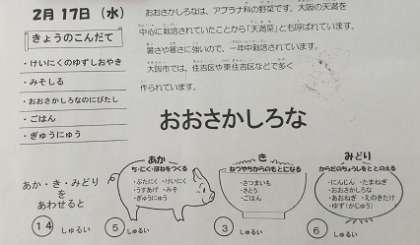 2月 17日（水）
きょうのこんだて
・けいにくのゆずしおやき
・みそしる
・おおさかしろなのにびたし
・ごはん
・ぎゅうにゅう
おおさかしろなは、アブラナ科の野菜です。大阪の天満を
中心に栽培されていたことから「天満菜」とも呼ばれています。
暑さや寒さに強いので、一年中栽培されています。
大阪市では、住吉区や東住吉区などで多く
作られています。
おおさかしろな
あか・き・みどり
を
あわせると
14 しゅるい
あか
ち・にく・ほねをつくる
・ぶたにく ・けいにく
・うすあげ ・みそ
・ぎゅうにゅう
5 しゅるい
き
ねつやちからのもとになる
・さつまいも
・さとう
・ごはん
3 しゅるい
みどり
からだのちょうしをととのえる
・にんじん ・たまねぎ
・おおさかしろな
・あおねぎ ・えのきたけ
・ゆず（かじゅう）
6 しゅるい